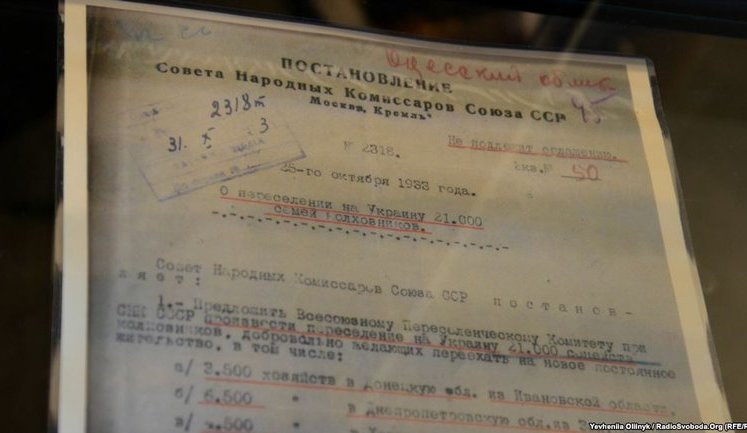 Одесский
ПОСТАНОВЛЕНИЕ
Совета Народных Комиссаров Союза ССР
Москва, Кремль
45
2318т
31. X 3
№ 2318.
Не подлежит оглашению.
экз.№ 50
25-го октября 1933 года.
О переселении на Украину 21.000
семей колховников.
Совет Народных Комиссаров Союза ССР постанов-
ляет:
1.- Предложить Всесоюзному Переселенческому Комитету при
СНК СССР произвести переселение на Украину 21.000 семейств
колховников, добровольно желающих переехать на новое постоянное
жительство, в том числе:
а/ 3.500 хозяйств в Донецкую обл. из Ивановской области.
б/ 6.500 " в Днепропетровскую обл.из
в/ .500 "
Yevheniia Oliinyk / RadioSvoboda.Org (RFE/R